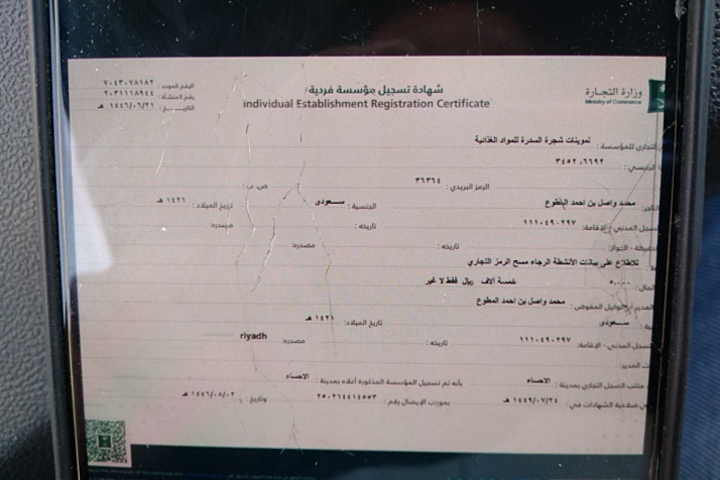 وزارة التجارة
Ministry of Commerce
شهادة تسجيل مؤسسة فردية
Individual Establishment Registration Certificate
الرقم الموحد : ٧٠٤٣٠٧٨١٨٢
رقم المنشأة : ٢٠٣١١١٨٩٤٤
التاريخ : ١٤٤٦/٠٦/٢١ هـ
التجاري للمؤسسة : تموينات شجرة السدرة للمواد الغذائية
الرئيسي : ٣٤٥٢ ،٦٦٩٢
الرمز البريدي : ٣٦٣٦٤ ص.ب :
محمد واصل بن احمد المطوع الجنسية : سعودي تاريخ الميلاد : ١٤٢١ هـ
السجل المدني - الإقامة: ١١١٠٤٩٠٢٩٧ تاريخه : مصدره:
تاريخه : مصدره:
للاطلاع على بيانات الأنشطة الرجاء مسح الرمز التجاري
المال : ٥,٠٠٠ خمسة آلاف ريال فقط لا غير
المفوض : محمد واصل بن احمد المطوع
سعودي تاريخ الميلاد: ١٤٢١ هـ
السجل المدني - الإقامة: ١١١٠٤٩٠٢٩٧ تاريخه : مصدره: riyadh
المدير:
مكتب السجل التجاري بمدينة : الاحساء بأنه تم تسجيل المؤسسة المذكورة أعلاه بمدينة : الاحساء
صلاحية الشهادات في : ١٤٤٩/٠٧/٢٤ هـ بموجب الإيصال رقم : ٢٥٠٢٦٤٤١٤٥٥٣ وتاريخ : ١٤٤٦/٠٨/٠٢ هـ